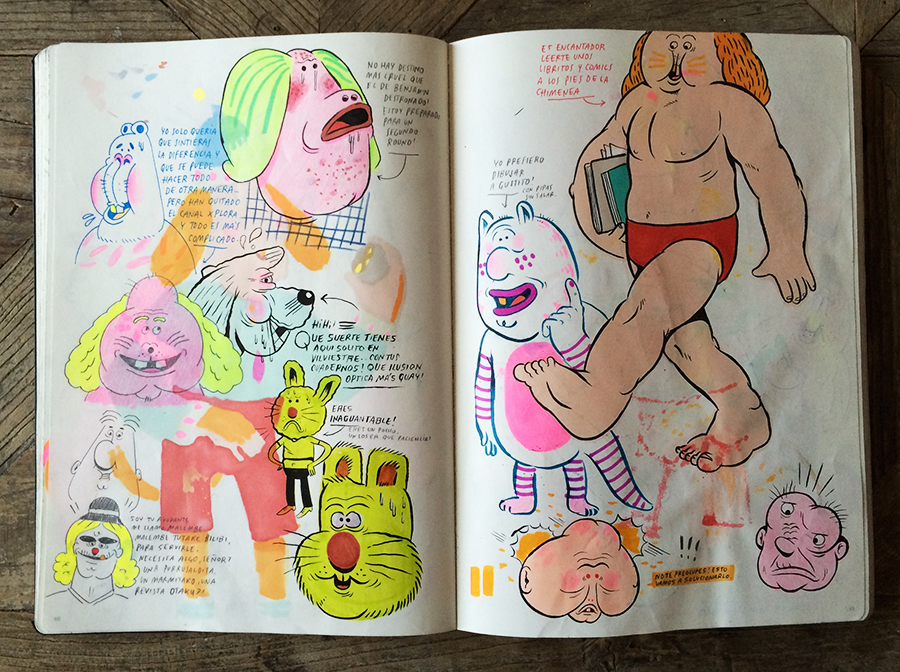 NO HAY DESTINO
MAS CRUEL QUE
EL DE BENJAMIN
DESTRONADO!
ESTOY PREPARADO
PARA UN
SEGUNDO
ROUND!
YO SOLO QUERÍA
QUE SINTIERAS
LA DIFERENCIA Y
QUE SE PUEDE
HACER TODO
DE OTRA MANERA...
PERO HAN QUITADO
EL CANAL XPLORA
Y TODO ES MAS
COMPLICADO
HiHi!
QUE SUERTE TIENES
AQUI SOLITO EN
VILVIESTRE... CON TUS
CUADERNOS! QUE ILUSION
OPTICA MÁS GUAY!
ERES
INAGUANTABLE!
QUE PACIENCIA!
SOY TU AYUDANTE
ME LLAMO MALEMBE
MALEMBE TUTAKE BILIBI,
PARA SERVIRLE.
NECESITA ALGO, SEÑOR?
UNA
UN MARMITAKO, UNA
REVISTA OTAKU?!
ES ENCANTADOR
LEERTE UNOS
LIBRITOS Y COMICS
A LOS PIES DE LA
CHIMENEA
YO PREFIERO
DIBUJAR
A GUSTITO!
CON PIPAS
SIN SALAR.
NO TE PREOCUPES! ESTO
VAMOS A SOLUCIONARLO